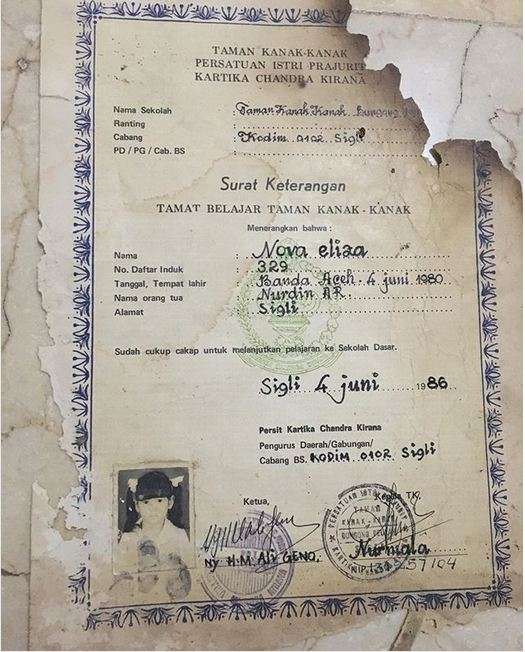 TAMAN KANAK-KANAK
PERSATUAN ISTRI PRAJURIT
KARTIKA CHANDRA KIRANA
Nama Sekolah : Taman Kanak Kanak
Ranting :
Cabang : Kodim 0102 Sigli
PD / PG / Cab. BS
Surat Keterangan
TAMAT BELAJAR TAMAN KANAK - KANAK
Menerangkan bahwa :
Nama : Nova eliza
No. Daftar Induk : 329
Tanggal, Tempat lahir : Banda Aceh - 4 juni 1980
Nama orang tua : Nurdin AR
Alamat : Sigli
Sudah cukup cakap untuk melanjutkan pelajaran ke Sekolah Dasar.
Sigli 4 juni 1986
Persit Kartika Chandra Kirana
Pengurus Daerah/Gabungan/
Cabang BS. KODIM 0102 Sigli
Ketua,
Kepala TK,
Ny H.M. Ali GENO.
Nurmala
NIP. 131